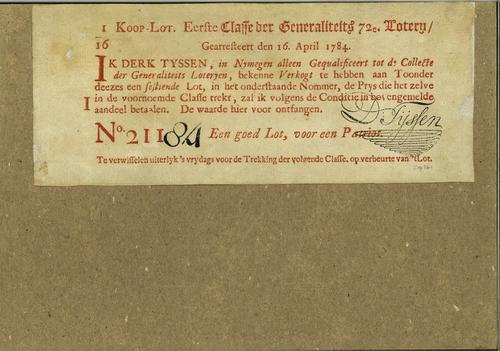 1 KOOP-LOT. Eerste Classe der Generaliteits 72e. Lotery/
16 Gearresteert den 16. April 1784.
IK DERK TYSSEN, in Nymegen alleen Gequalificeert tot de Collecte
der Generaliteits Loteryen, bekenne Verkogt te hebben aan Toonder
deezes een sestiende Lot, in het onderstaande Nommer, de Prys die het zelve
in de voornoemde Classe trekt, zal ik volgens de Conditie in bovengemelde
I aandeel betaalen. De waarde hier voor ontfangen.
D Tijssen
No. 21184 Een goed Lot, voor een Patriot.
Te verwisselen uiterlyk 's vrydags voor de Trekking der volgende Classe, op verbeurte van 't Lot.